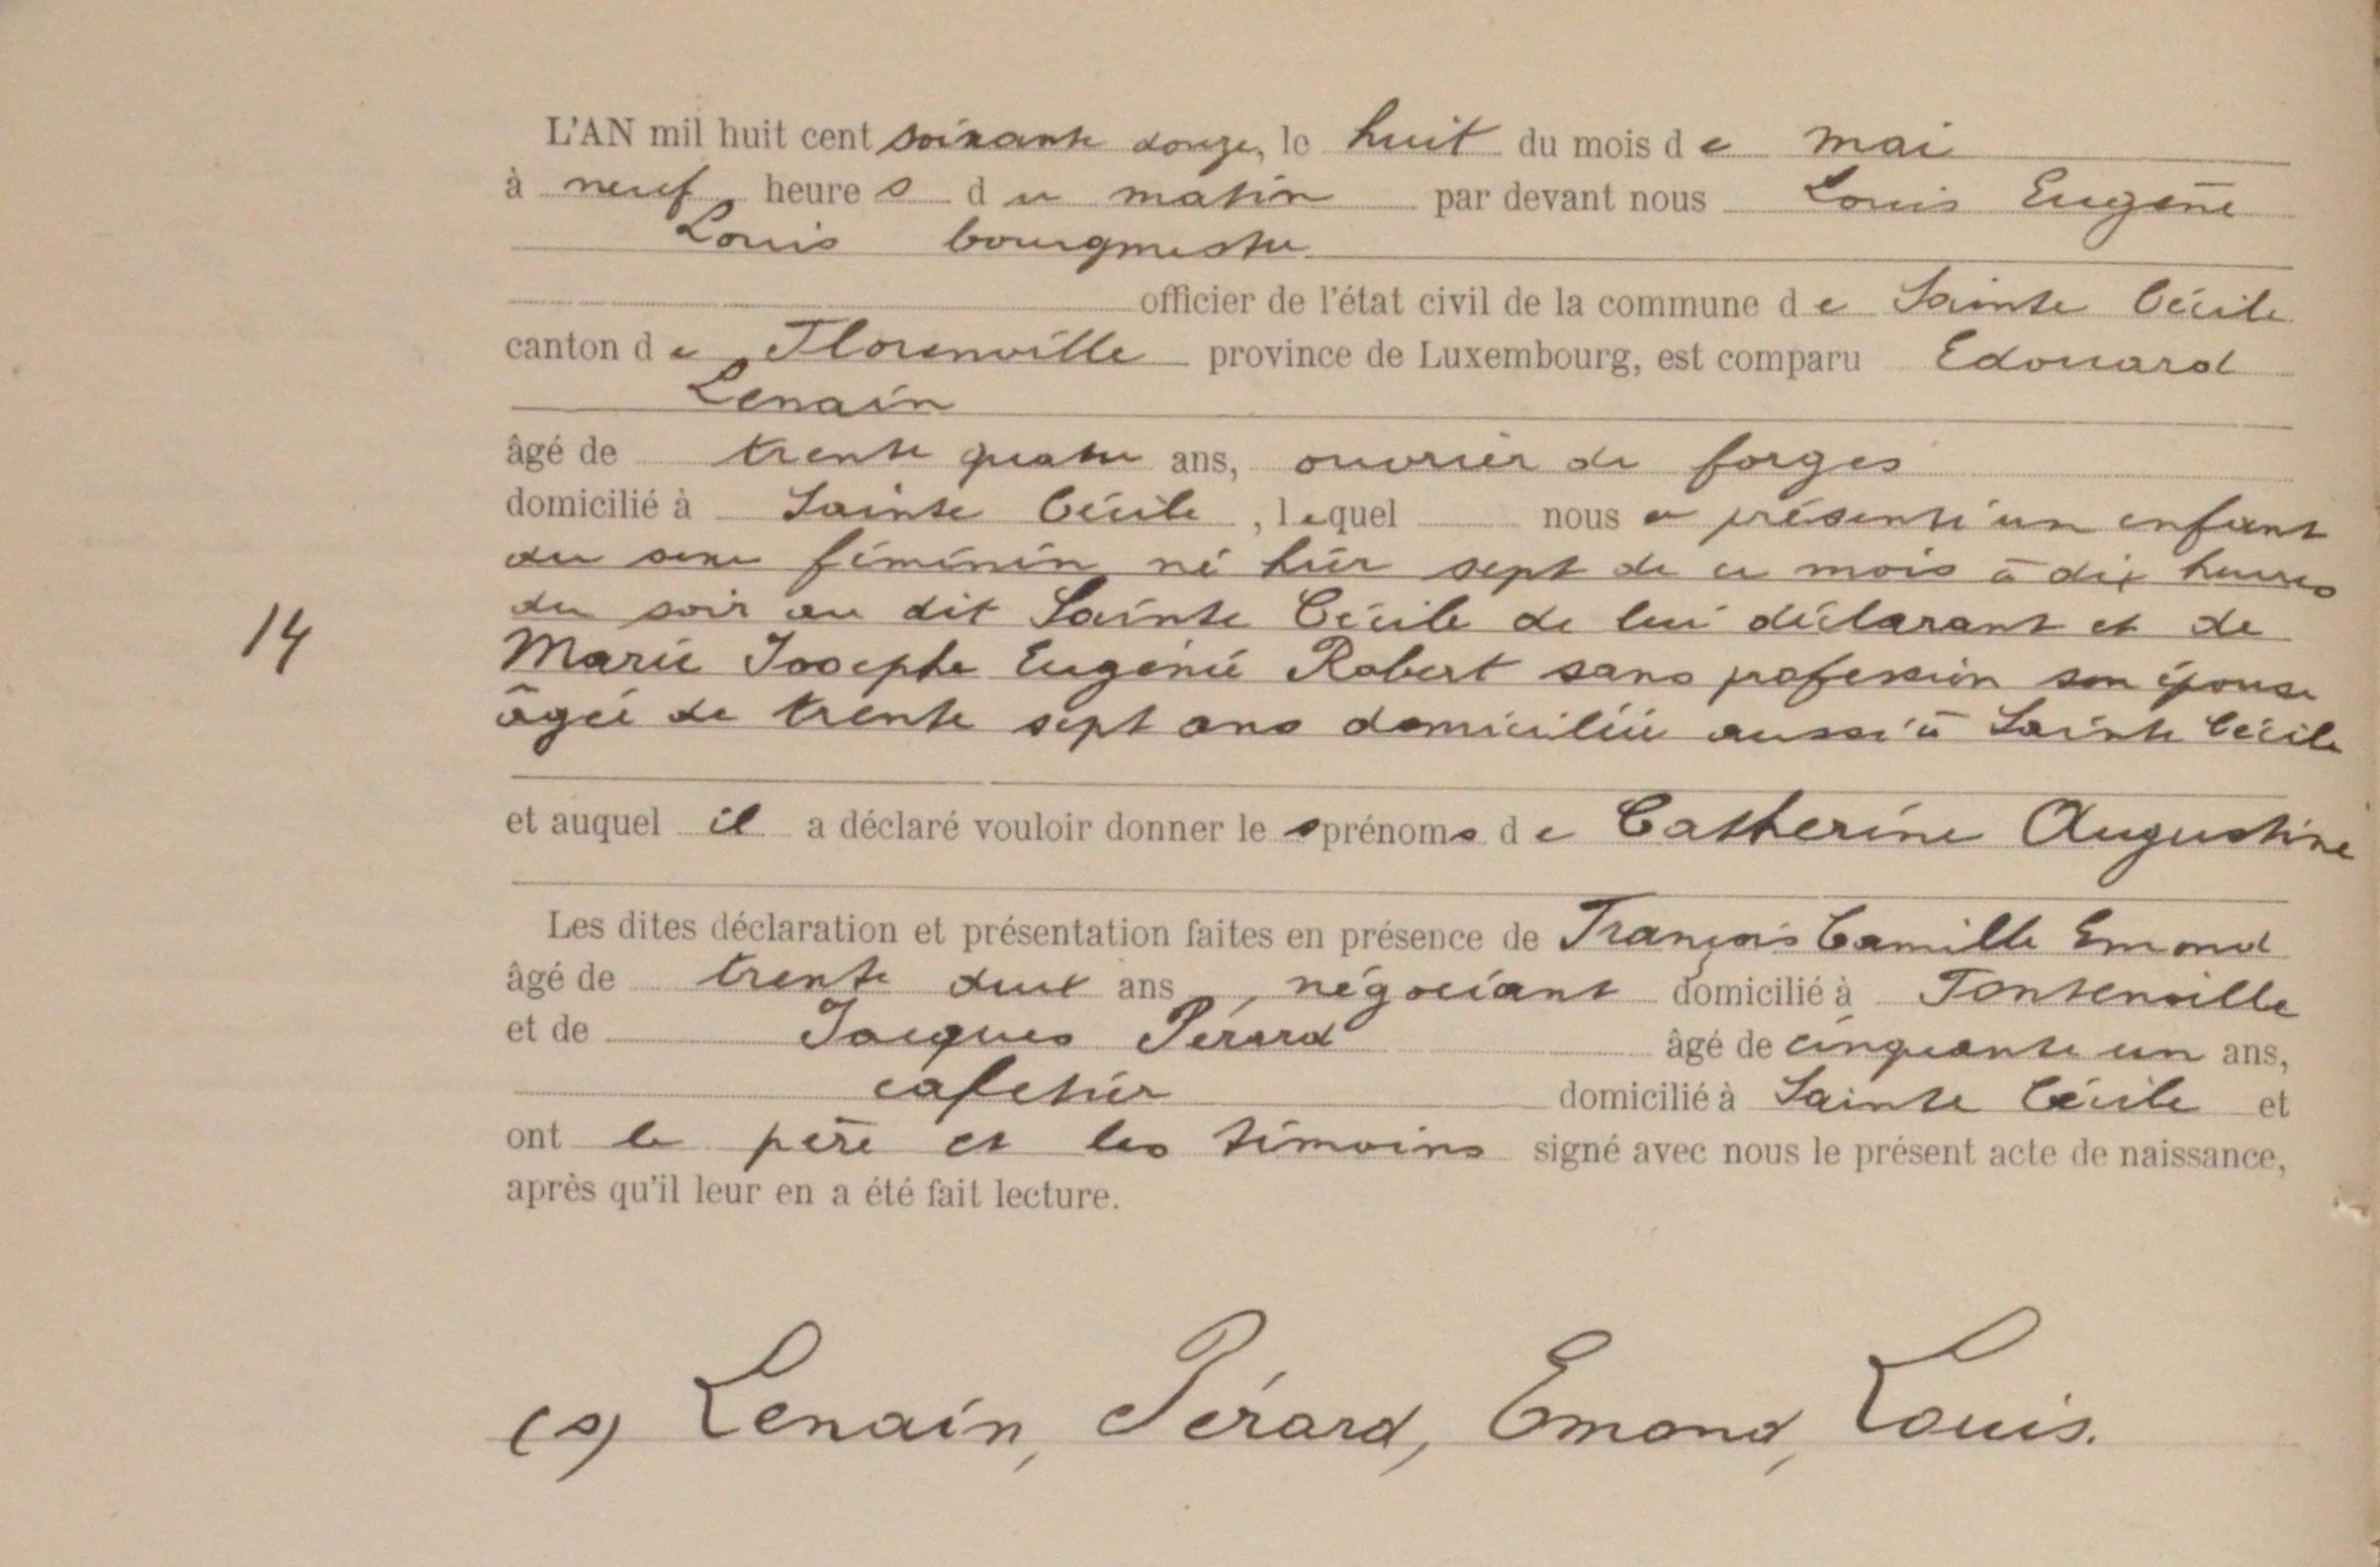 L'AN mil huit cent soixante douze, le huit du mois de mai
à neuf heures du matin par devant nous Louis Eugène
Louis bourgmestre
officier de l'état civil de la commune de Sainte Cécile
canton de Florenville province de Luxembourg, est comparu Edouard
Lenain
âgé de trente quatre ans, ouvrier de forges
domicilié à Sainte Cécile, lequel nous a présenté un enfant
du sexe féminin né hier sept de ce mois à dix heures
du soir au dit Sainte Cécile de lui déclarant et de
14
Marie Josephe Eugénie Robert sans profession son épouse
âgée de trente sept ans domiciliée aussi à Sainte Cécile
et auquel il a déclaré vouloir donner les prénoms de Catherine Augustine
Les dites déclaration et présentation faites en présence de François Camille Emond
âgé de trente deux ans, négociant domicilié à Fontenoille
et de Jacques Pérard âgé de cinquante un ans,
cafetier domicilié à Sainte Cécile et
ont le père et les témoins signé avec nous le présent acte de naissance,
après qu'il leur en a été fait lecture.
(s) Lenain, Pérard, Emond, Louis.